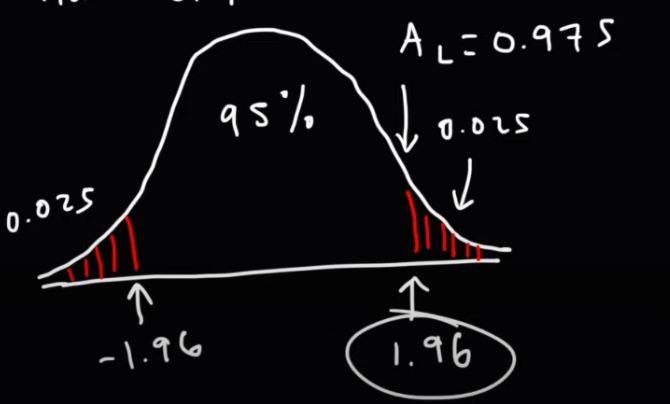 A L = 0.975
95%
0.025
0.025
-1.96
1.96